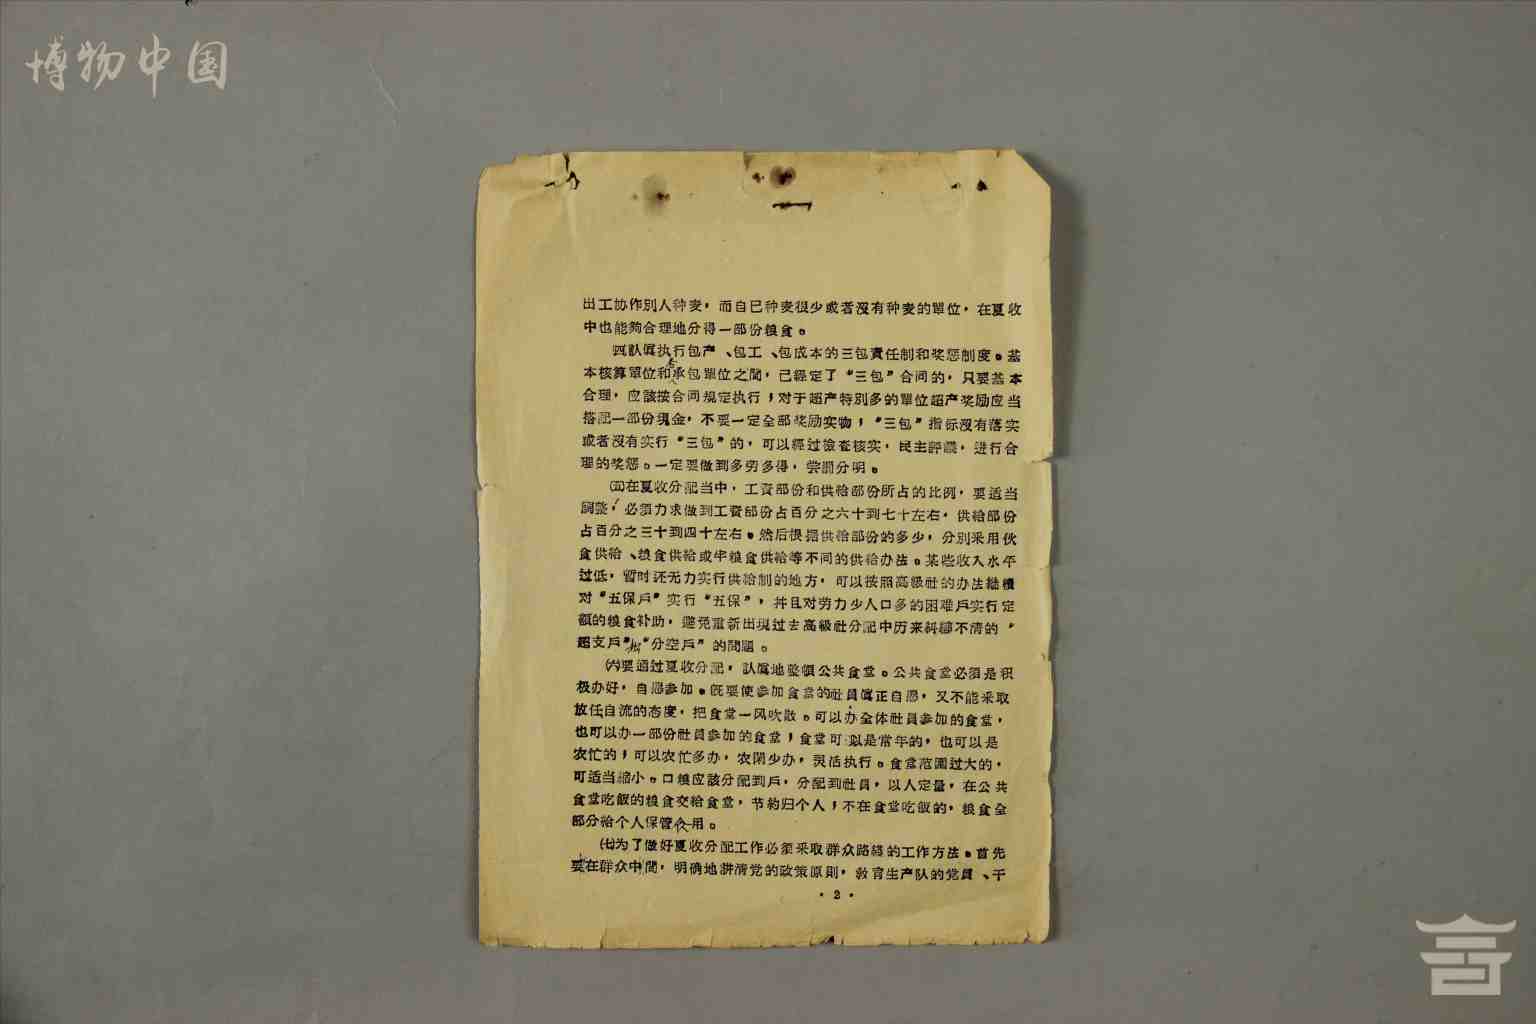 博物中国
出工协作別人种麦，而自已种麦很少或者沒有种麦的單位，在夏收
中也能夠合理地分得一部份粮食。
㈣認眞执行包产、包工、包成本的三包責任制和奖惩制度。基
本核算單位和承包單位之間，已經定了“三包”合同的，只要基本
合理，应該按合同規定执行；对于超产特別多的單位超产奖励应当
搭配一部份現金，不要一定全部奖励实物；“三包”指标沒有落实
或者沒有实行“三包”的，可以經过檢査核实，民主評議，进行合
理的奖惩。一定要做到多劳多得，尝罰分明。
㈤在夏收分配当中，工資部份和供給部份所占的比例，要适当
調整，必須力求做到工資部份占百分之六十到七十左右，供給部份
占百分之三十到四十左右。然后根据供給部份的多少，分別采用伙
食供給、粮食供給或半粮食供給等不同的供給办法。某些收入水平
过低，暫时还无力实行供給制的地方，可以按照高級社的办法継續
对“五保戶”实行“五保”，幷且对劳力少人口多的困难戶实行定
額的粮食补助，避免重新出現过去高級社分配中历来糾纏不清的“
超支戶”和“分空戶”的問題。
㈥要通过夏收分配，認眞地整頓公共食堂。公共食堂必須是积
极办好，自愿参加。既要使参加食堂的社員眞正自愿，又不能采取
放任自流的态度，把食堂一风吹散。可以办全体社員参加的食堂，
也可以办一部份社員参加的食堂；食堂可以是常年的，也可以是
农忙的；可以农忙多办，农閑少办，灵活执行。食堂范圍过大的，
可适当縮小。口粮应該分配到戶，分配到社員，以人定量，在公共
食堂吃飯的粮食交給食堂，节約归个人；不在食堂吃飯的，粮食全
部分給个人保管食用。
㈦为了做好夏收分配工作必須采取群众路綫的工作方法。首先
要在群众中間，明确地讲清党的政策原則，敎育生产队的党員、干
·2·